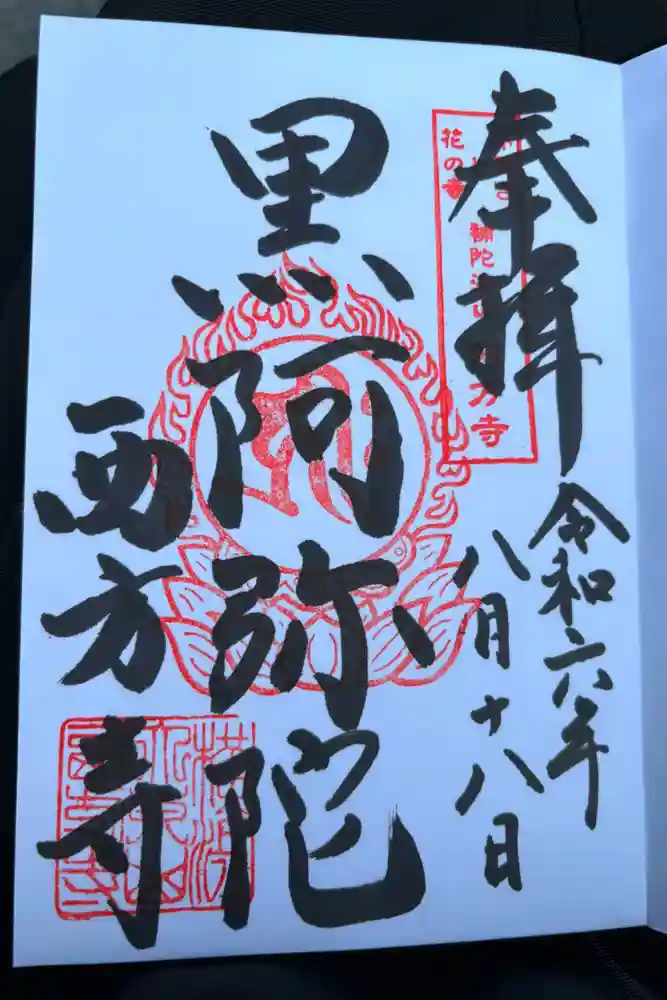 奉拝
令和六年
八月十八日
黒阿弥陀
西方寺
花の寺